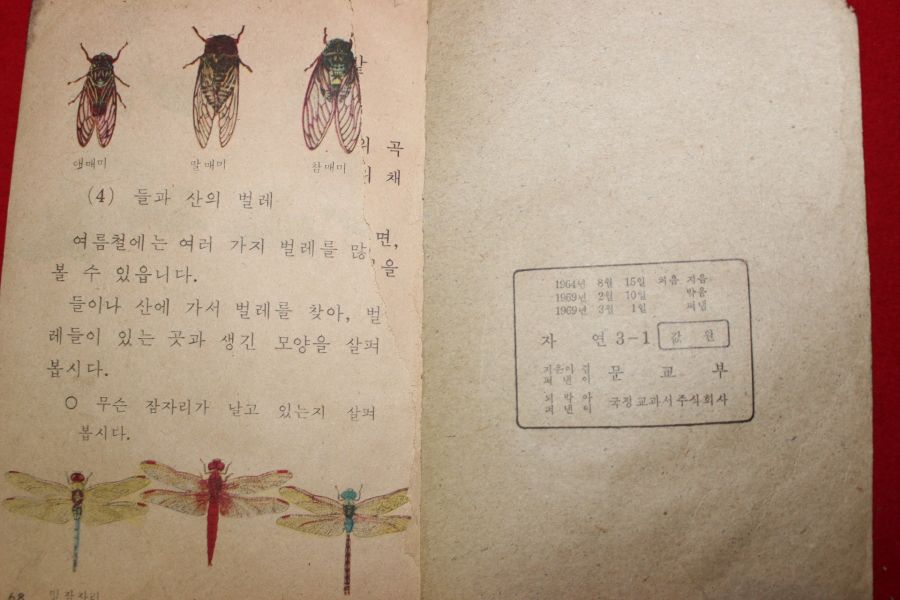 애매미
말매미
참매미
(4) 들과 산의 벌레
여름철에는 여러 가지 벌레를 많
볼 수 있읍니다.
들이나 산에 가서 벌레를 찾아, 벌
레들이 있는 곳과 생긴 모양을 살펴
봅시다.
○ 무슨 잠자리가 날고 있는지 살펴
봅시다.
68
곡
채
면,
을
1964년 8월 15일 처음 지음
1969년 2월 10일 박음
1969년 3월 1일 펴냄
자 연 3-1 값 원
지은이 겸
펴낸이 문교부
펴낸이 국정교과서주식회사